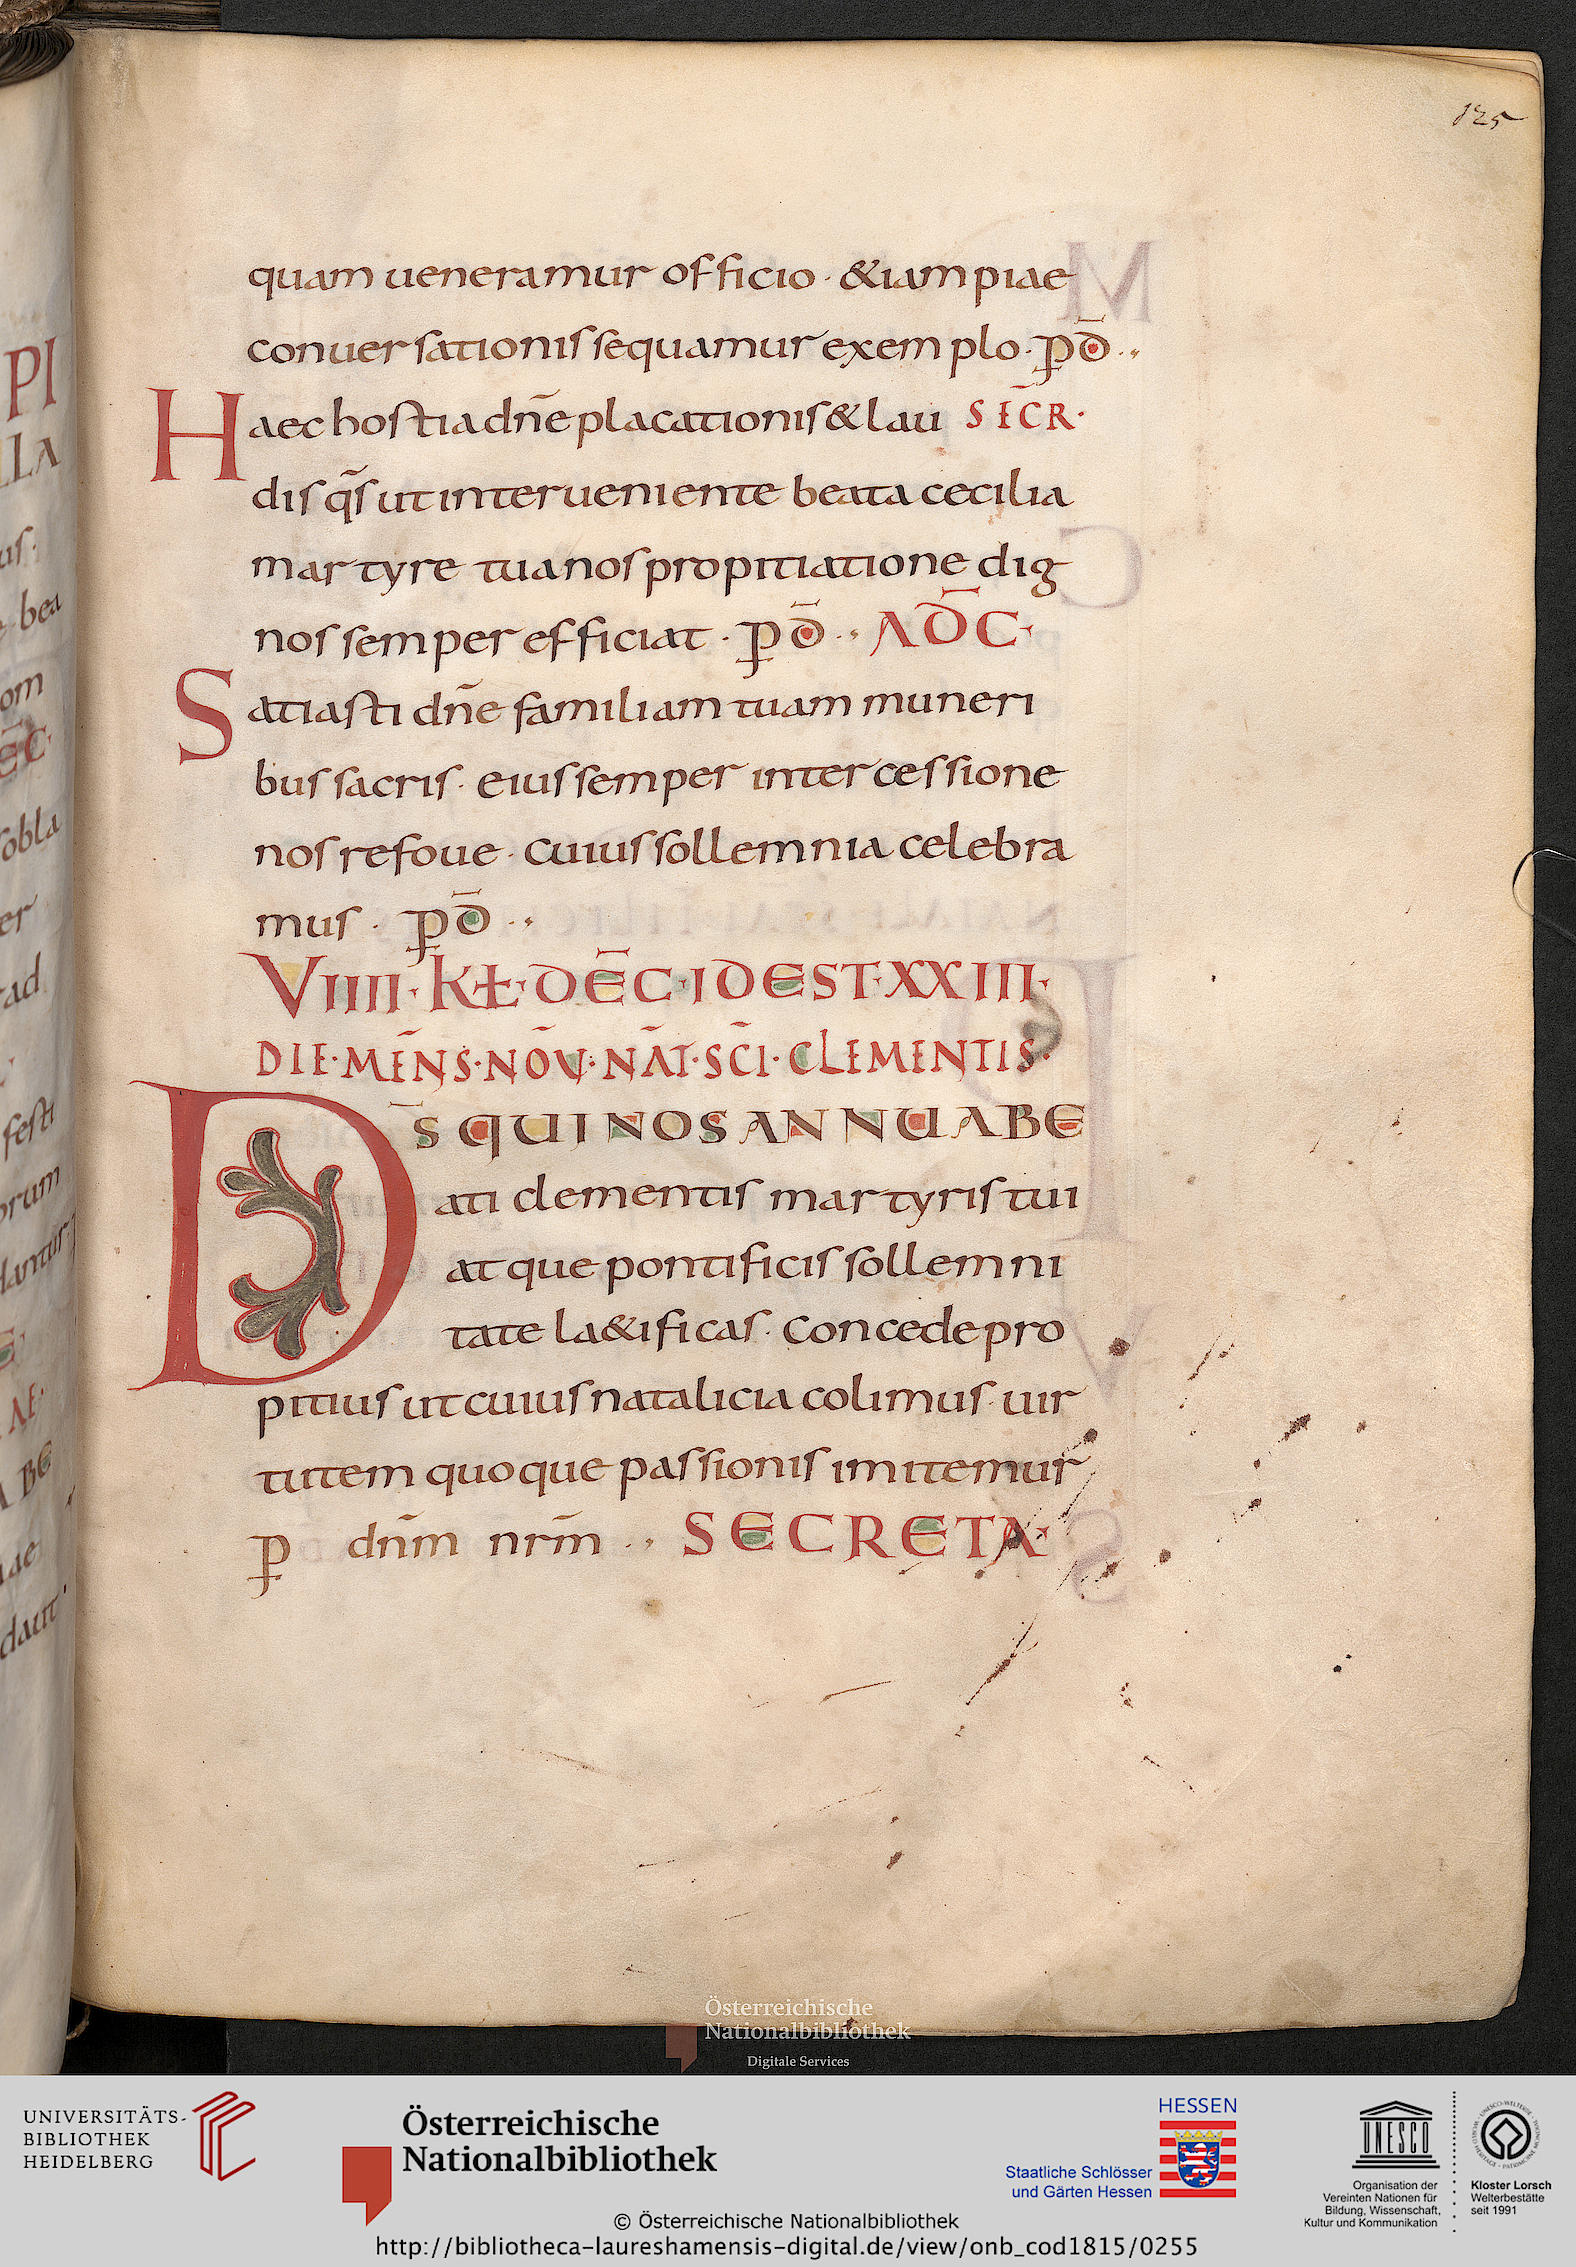 125
quam ueneramur officio · &iam piae
conuersationis sequamur exemplo · p̄ d̄ ··
Haec hostia dn̄e placationis & lau SEC̄R·
dis qs̄ ut interueniente beata cecilia
martyre tua nos propitiatione dig
nos semper efficiat · p̄ d̄ ·· AD̄ C·
Satiasti dn̄e familiam tuam muneri
bus sacris · eius semper intercessione
nos refoue · cuius sollemnia celebra
mus · p̄ d̄ ··
VIIII · KƗ · DEC̄ · IDEST · XXIII ·
DIE · MEN̄S · NOV̄ · NAT̄ · SC̄I · CLEMENTIS ·
DS̄ QUI NOS ANNUA BE
ati clementis martyris tui
atque pontificis sollemni
tate la&ificas · Concede pro
pitius ut cuius natalicia colimus · uir
tutem quoque passionis imitemur
p dn̄m nrm̄ ·· SECRETA ·
PI
LLA
us ·
bea
om
EC·
sobla
er
ad
festi
orum
AE·
A BE
daut
Österreichische
Nationalbibliothek
Digitale Services
UNIVERSITÄTS-
BIBLIOTHEK
HEIDELBERG
Österreichische
Nationalbibliothek
HESSEN
Staatliche Schlösser
und Gärten Hessen
UNESCO
Organisation der
Vereinten Nationen für
Bildung, Wissenschaft,
Kultur und Kommunikation
Kloster Lorsch
Welterbestätte
seit 1991
© Österreichische Nationalbibliothek
http://bibliotheca-laureshamensis-digital.de/view/onb_cod1815/0255